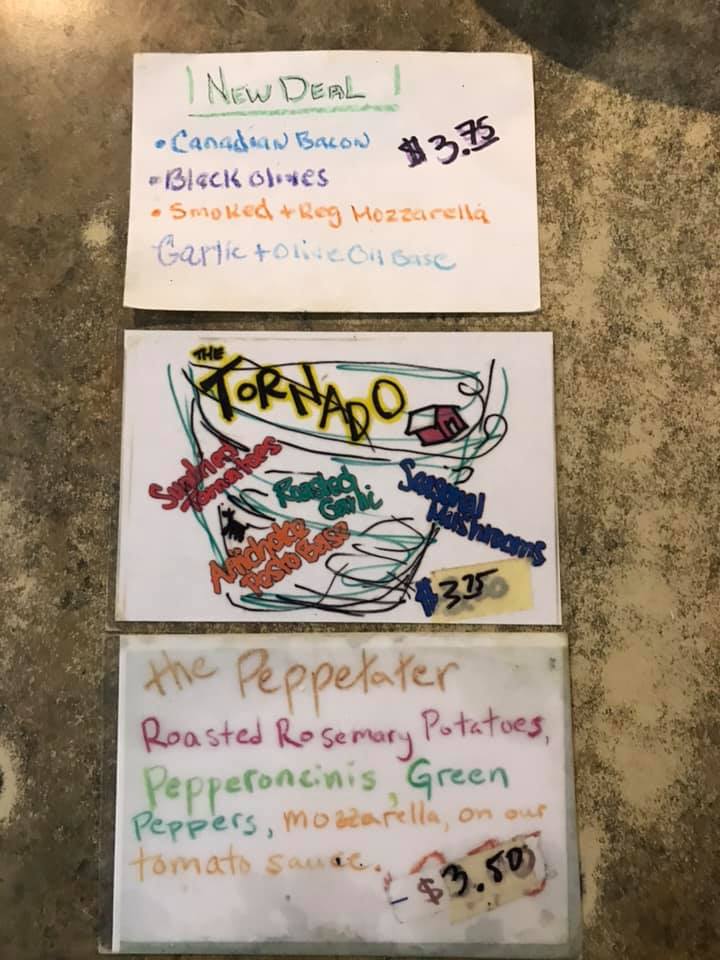 NEW DEAL
• Canadian Bacon $3.75
• Black olives
• Smoked + Reg Mozzarella
Garlic + Olive Oil Base
THE
TORNADO
Sundried Tomatoes
Roasted Garlic
Seasonal Mushrooms
Artichoke Pesto Base
$3.75
the Peppetater
Roasted Rosemary Potatoes,
Pepperoncinis, Green
Peppers, mozzarella, on our
tomato sauce.
$3.50